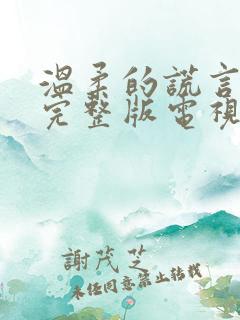 溫柔的謊言
完整版電視
謝茂芝
未經同意禁止轉載